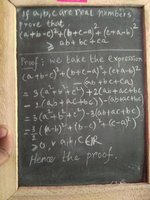 If a,b,c are real numbers
prove that,
(a+b-c)²+(b+c-a)²+(c+a-b)²
≥ ab+bc+ca
Proof: we take the expression
(a+b-c)²+(b+c-a)²+(c+a-b)²
-(ab+bc+ca)
=3(a²+b²+c²)+2(ab+ac+bc)
-(ab+ac+bc)
=3(a²+b²+c²)-3(ab+ac+bc)
{(a-b)²+(b-c)²+(c-a)²}
≥0, ∀ a,b,c ∈ ℝ
Hence the proof.